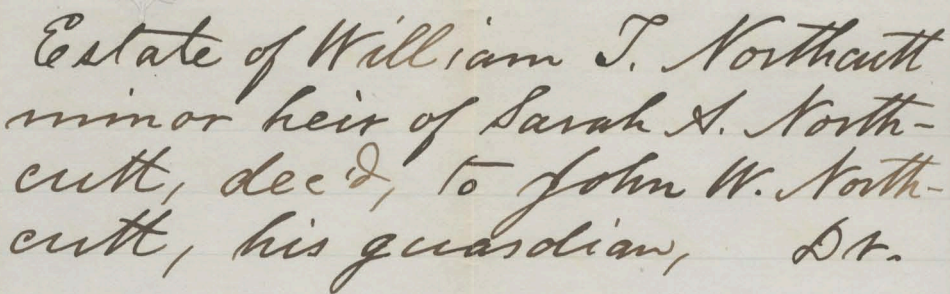 Estate of William T. Northcutt
minor heir of Sarah S. North-
cutt, dec'd, to John W. North-
cutt, his guardian, Dr.